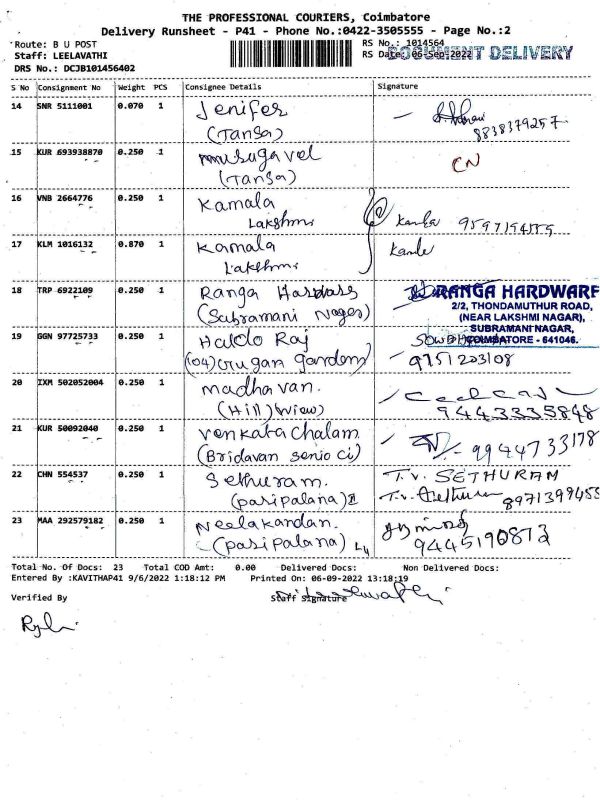 THE PROFESSIONAL COURIERS, Coimbatore
Delivery Runsheet - P41 - Phone No.:0422-3505555 - Page No.:2
Route: B U POST
RS No.: 1014564
Staff: LEELAVATHI
RS Date: 06-Sep-2022
DOCUMENT DELIVERY
DRS No.: DCJB101456402
S No Consignment No Weight PCS Consignee Details Signature
14 SNR 5111001 0.070 1 Jenifer
(Tansa)
8838379257
15 KUR 693938870 0.250 1 murugavel
(Tansa)
CN
16 VNB 2664776 0.250 1 Kamala
Lakshmi
17 KLM 1016132 0.870 1 Kamala
Lakshmi
18 TRP 6922109 0.250 1 Ranga Hardass
(Subramani Nager)
RANGA HARDWARE
2/2, THONDAMUTHUR ROAD,
(NEAR LAKSHMI NAGAR),
SUBRAMANI NAGAR,
COIMBATORE - 641046.
19 GGN 97725733 0.250 1 Haldo Raj
gardens
9751203108
20 IXM 502052004 0.250 1 madhavan.
(Hill) (view)
9443335848
21 KUR 50092040 0.250 1 venkatachalam
(Bridavan senio ci)
9944733178
22 CHN 554537 0.250 1 Sethuram.
(paripalana)
T.V. SETHURAM
8971399455
23 MAA 292579182 0.250 1 Neelakandan.
(paripalana)
9445190872
Total No. Of Docs: 23 Total COD Amt: 0.00 Delivered Docs: Non Delivered Docs:
Entered By :KAVITHAP41 9/6/2022 1:18:12 PM Printed On: 06-09-2022 13:18:19
Verified By
Staff Signature